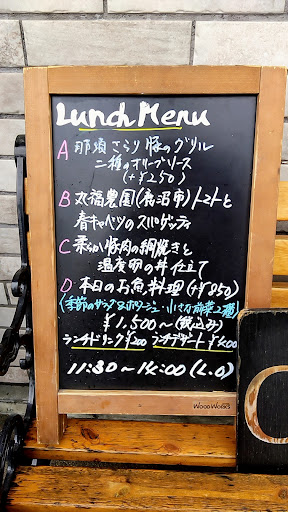 Lunch Menu
A 那須さらり豚のグリル
二種のオリーブソース
(+¥250)
B 丸福農園(鹿沼市)トマトと
春キャベツのスパゲッティ
C 柔らか豚肉の網焼きと
温度卵の丼仕立て
D 本日のお魚料理 (+¥850)
(季節のサラダ&ポタージュ・小さな前菜2種)
¥1,500~(税込み)
ランチドリンク¥200 ランチデザート¥400
11:30~14:00 (L.O)
WOODWORKS